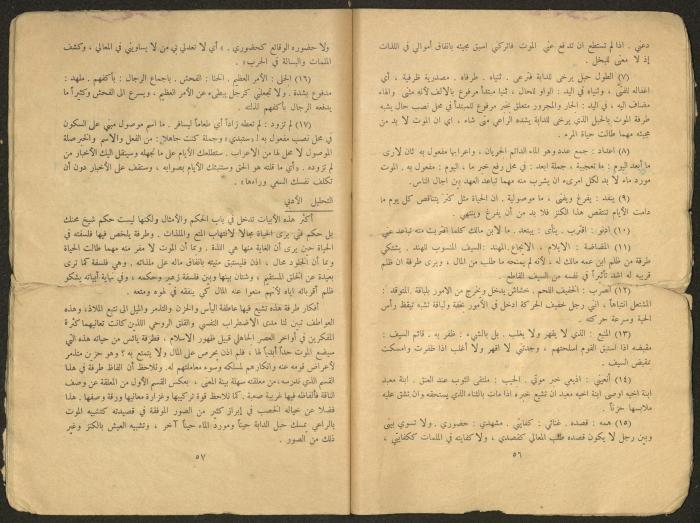 دعني . اذا لم تستطع ان تدفع عني الموت فاتركني اسبق مجيئه بانفاق أموالي في اللذات
إذ لا معنى للبخل .
(٧) الطول حبل يرخى للدابة فترعى . ثنياه . طرفاه . مصدرية ظرفية ، أي
اغفاله للفتى ، وثنياه في اليد : الواو للحال ، ثنيا مبتدأ مرفوع بالالف لأنه مثنى والهاء
مضاف اليه ، في اليد : الجار والمجرور متعلق بخبر مرفوع للمبتدأ في محل نصب حال يشبه
طرفة الموت بالحبل الذي يرخى للدابة يشده الراعي متى شاء ، اي ان الموت لا بد من
مجيئه مهما طالت حياة المرء .
(٨) اعداد : جمع عدد وهو الماء الدائم الجريان ، واعرابها مفعول به ثان لارى
ما أبعد اليوم : ما تعجبية ، جملة ابعد : في محل رفع خبر ما ، اليوم : مفعول به . الموت
مورد ماء لا بد لكل امرىء ان يشرب منه مهما تباعد العهد بين اجال الناس .
(٩) ينفد : يفرغ ويفنى ، ما موصولية . ان الحياة مثل كنز يتناقص كل يوم ما
دامت الأيام تتنقص هذا الكنز فلا بد من أن يفرغ وينتهي .
(١٠) ادنو : اقترب . ينأى : يبتعد . ما لابن مالك كلما اقتربت منه تباعد عني
(١١) المضاضة : الايلام ، الانجاع . المهند : السيف المنسوب للهند . يشتكي
طرفة من ظلم ابن عمه مالك له ، لأنه لم يمنحه ما طلب من المال ، ويرى طرفة ان ظلم
قريبه له اشد تأثيراً في نفسه من السيف القاطع .
(١٢) الضرب : الخفيف اللحم . خشاش يدخل ويخرج من الامور بلباقة . المتوقد :
المشتعل انتباهاً ، انني رجل خفيف الحركة ادخل في الأمور خفة ولباقة تشبه تيقظ رأس
الحية وسرعة حركته .
(١٣) المنيع : الذي لا يقهر ولا يغلب . بل بالشيء : ظفر به . قائم السيف :
مقبضه اذا استبق القوم اسلحتهم ، وجدتني لا اقهر ولا أغلب اذا ظفرت وامسكت
بمقبض السيف .
(١٤) أنعيني : اذيعي خبر موتي . الجيب : ملتقى الثوب عند العنق . ابنة معبد
ابنة اخيه اوصى ابنة اخيه معبد ان تشيع خبره اذا مات بالثناء الذي يستحقه وان تشق عليه
ملابسها حزناً .
(١٥) همه : قصده . غنائي : كفايتي . مشهدي : حضوري . ولا تسوي بيني
وبين رجل لا يكون قصده طلب المعالي كقصدي ، ولا كفايته في الملمات ككفايتي ،
٥٦
ولا حضوره الوقائع كحضوري . » أي لا تعدلي بي من لا يساويني في المعالي ، وكشف
الملمات والبسالة في الحرب « .
(١٦) الجلى : الأمر العظيم . الخنا : الفحش . باجماع الرجال : بأكفهم . ملهد :
مدفوع بشدة . ولا تجعلني كرجل يبطىء عن الأمر العظيم ، ويسرع الى الفحش وكثيراً ما
يدفعه الرجال بأكفهم لذلته .
(١٧) لم تزود : لم تعطه زاداً أي طعاماً ليسافر . ما اسم موصول مبني على السكون
في محل نصب مفعول به ( وستبدي » وجملة كنت جاهلا : من الفعل والاسم والخبر صلة
الموصول لا محل لها من الاعراب . ستطلعك الأيام على ما تجهله وسينقل اليك الأخبار من
لم تزوده . وأي ما قلته هو الحق وستنبئك الأيام بصوابه ، وستقف على الأخبار دون أن
تكلف نفسك السعي وراءها » .
التحليل الأدبي
أكثر هذه الأبيات تدخل في باب الحكم والأمثال ولكنها ليست حكم شيخ محنك
بل حكم فتى يرى الحياة مجالا لانتهاب المتع والملذات . وطرفة يلخص فيها فلسفته في
الحياة حين يرى أن الغاية منها هي اللذة . وبما أن الموت لا مفر منه مهما طالت الحياة
وبما أن الخلود محال ، اذن فليستبق منيته بانفاق ماله على ملذاته . وهي فلسفة كما ترى
بعيدة عن الخلق المستقيم ، وشتان بينها وبين فلسفة زهير وحكمه ، وفي نهاية أبياته يشكو
ظلم أقربائه اياه لأنهم منعوا عنه المال كي ينفقه في لهوه ومتعه .
أفكار طرفة هذه تشيع فيها عاطفة اليأس والحزن والتذمر والميل الى تتبع الملاذ ، وهذه
العواطف تبين لنا مدى الاضطراب النفسي والقلق الروحي اللذين كانت تعانيهما كثرة
المفكرين في أواخر العصر الجاهلي قبيل ظهور الاسلام ، فطرفة يائس من حياته هذه التي
سيضع الموت حداً أبدياً لها ، فلم اذن يحرص على المال ولا يتمتع به ؟ وهو حزين متذمر
لأعراض قومه عنه وانكارهم لمسلكه وسوء معاملتهم له . ونلاحظ أن الفاظ طرفة في هذا
القسم الذي ندرسه ، من معلقته سهلة بينة المعنى ، بعكس القسم الأول من المعلقة من وصف
الناقة فألفاظه فيها غريبة صعبة . كما نلاحظ قوة تركيبها وغزارة معانيها ورقة وصفها . هذا
فضلا عن خياله الخصب في إبراز كثير من الصور الموفقة في قصيدته كتشبيه الموت
بالراعي يمسك حبل الدابة حيناً ومورد الماء حيناً آخر ، وتشبيه العيش بالكنز وغير
ذلك من الصور .
٥٧